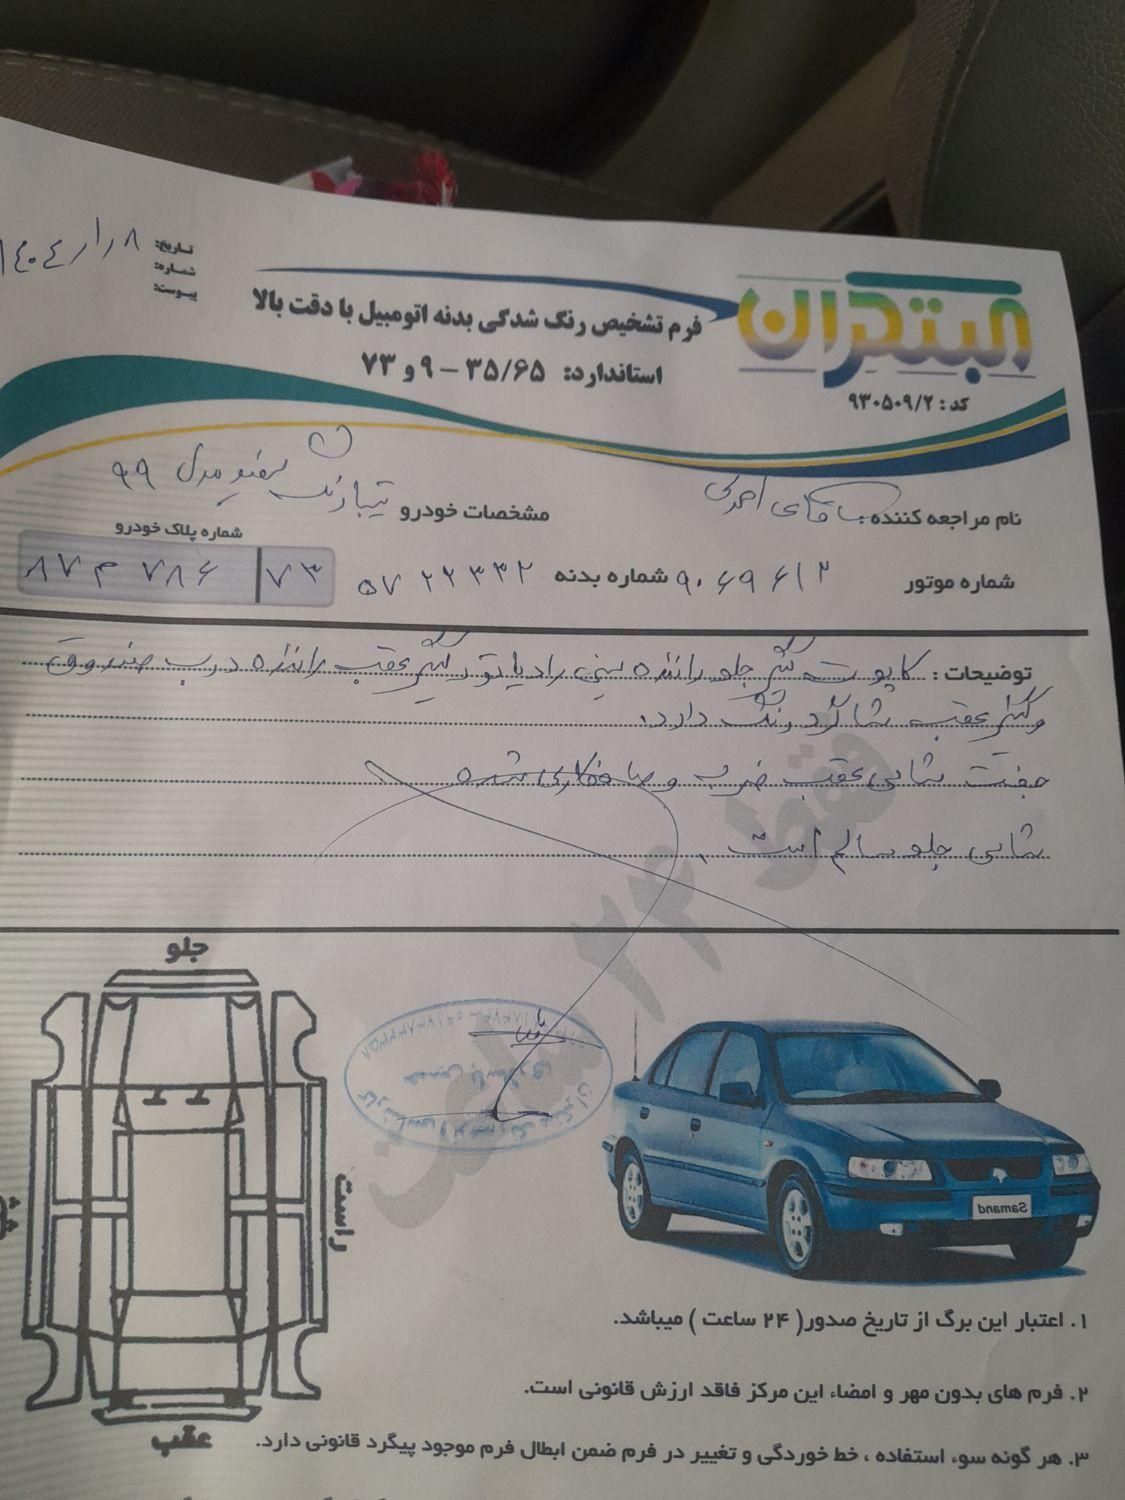 مبتکران
کد: ۹۳۰۵۰۹/۲
فرم تشخیص رنگ شدگی بدنه اتومبیل با دقت بالا
استاندارد: ۳۵/۶۵ – ۹ و ۷۳
تاریخ: ۱۴۰۴/۱/۸
شماره:
پیوست:
نام مراجعه کننده: آقای احمدی
مشخصات خودرو تیبا رنگ سفید مدل ۹۹
شماره پلاک خودرو
شماره موتور ۹۰۶۹۶۱۲ شماره بدنه ۵۷۲۲۳۳۲
۸۷ م ۷۸۶ ۷۳
توضیحات: کاپوت گلگیر جلو راننده سینی رادیاتور گلگیر عقب راننده درب صندوق
و گلگیر عقب شاگرد رنگ دارد.
جفت شاسی عقب ضربه و صافکاری شده
شاسی جلو سالم است.
فقط ۲۴ ساعت
جلو
راست
عقب
Samand
۱. اعتبار این برگ از تاریخ صدور ( ۲۴ ساعت ) میباشد.
۲. فرم های بدون مهر و امضاء این مرکز فاقد ارزش قانونی است.
۳. هر گونه سوء استفاده ، خط خوردگی و تغییر در فرم ضمن ابطال فرم موجود پیگرد قانونی دارد.